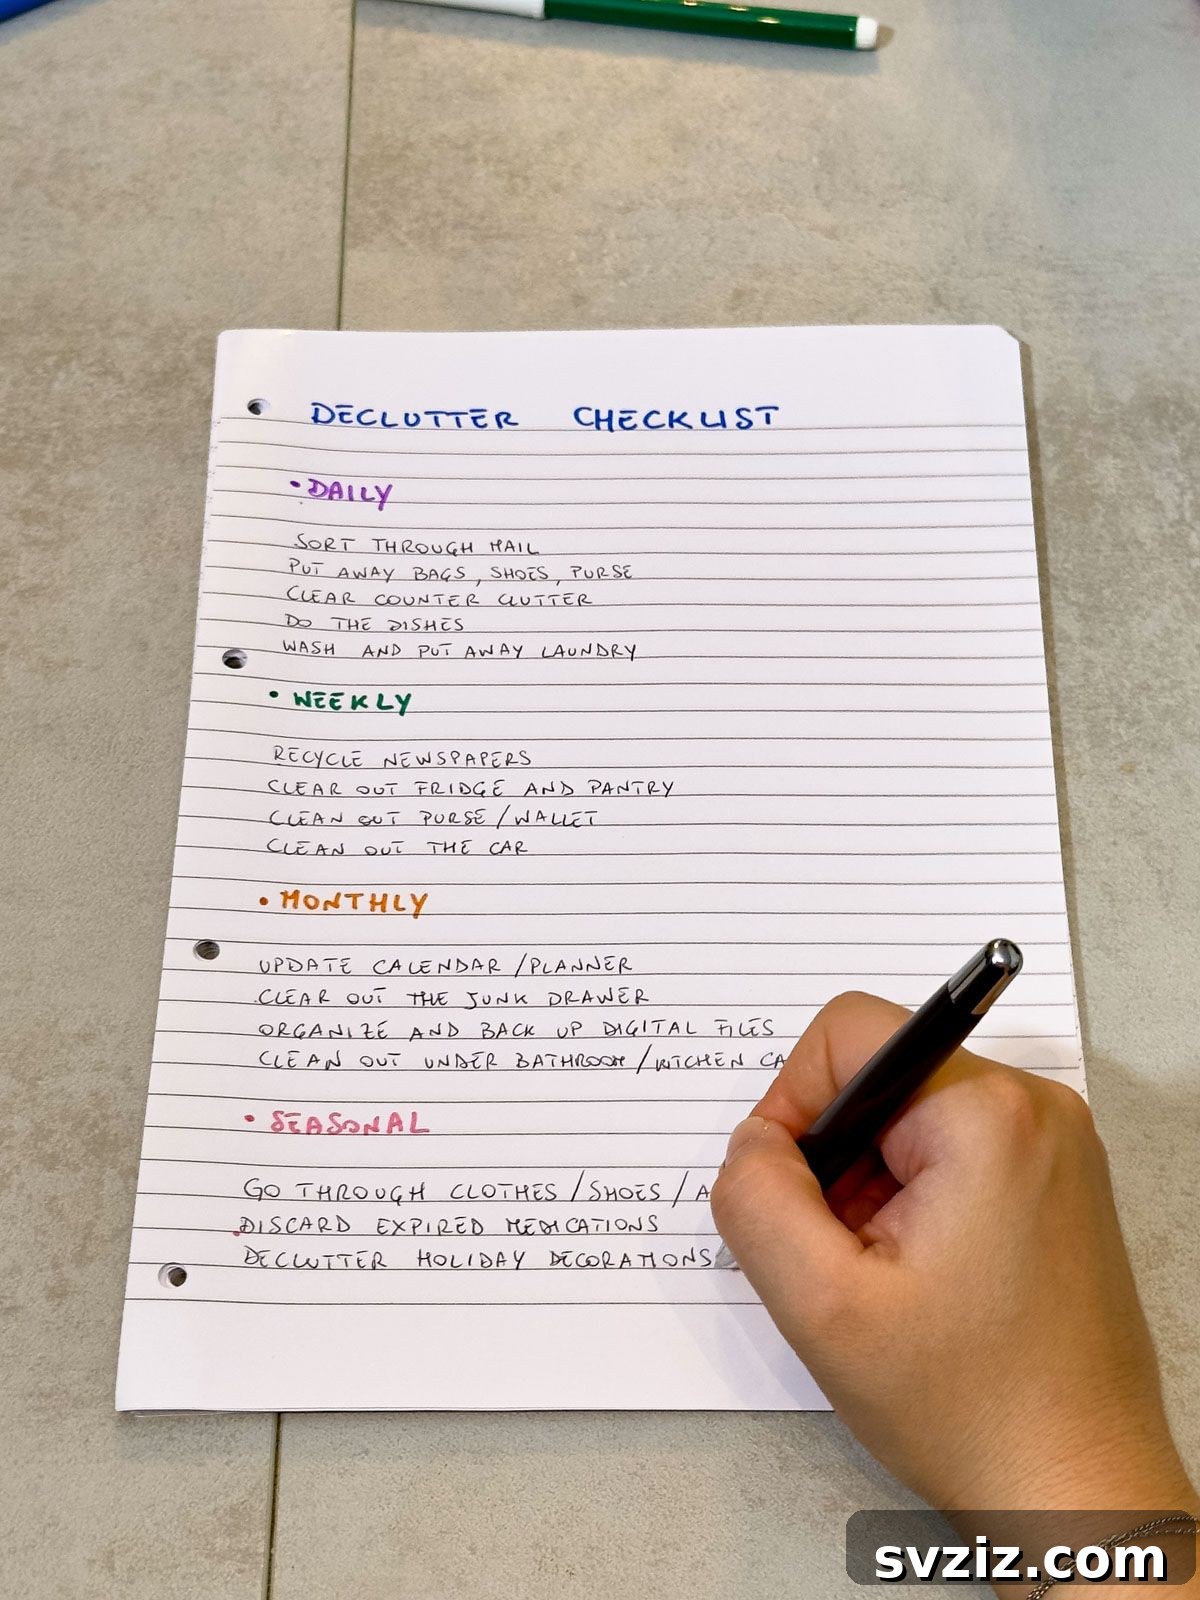 DECLUTTER CHECKLIST
• DAILY
SORT THROUGH MAIL
PUT AWAY BAGS, SHOES, PURSE
CLEAR COUNTER CLUTTER
DO THE DISHES
WASH AND PUT AWAY LAUNDRY
• WEEKLY
RECYCLE NEWSPAPERS
CLEAR OUT FRIDGE AND PANTRY
CLEAN OUT PURSE / WALLET
CLEAN OUT THE CAR
• MONTHLY
UPDATE CALENDAR / PLANNER
CLEAR OUT THE JUNK DRAWER
ORGANIZE AND BACK UP DIGITAL FILES
CLEAN OUT UNDER BATHROOM / KITCHEN CA
• SEASONAL
GO THROUGH CLOTHES / SHOES / A
DISCARD EXPIRED MEDICATIONS
DECLUTTER HOLIDAY DECORATIONS
svziz.com